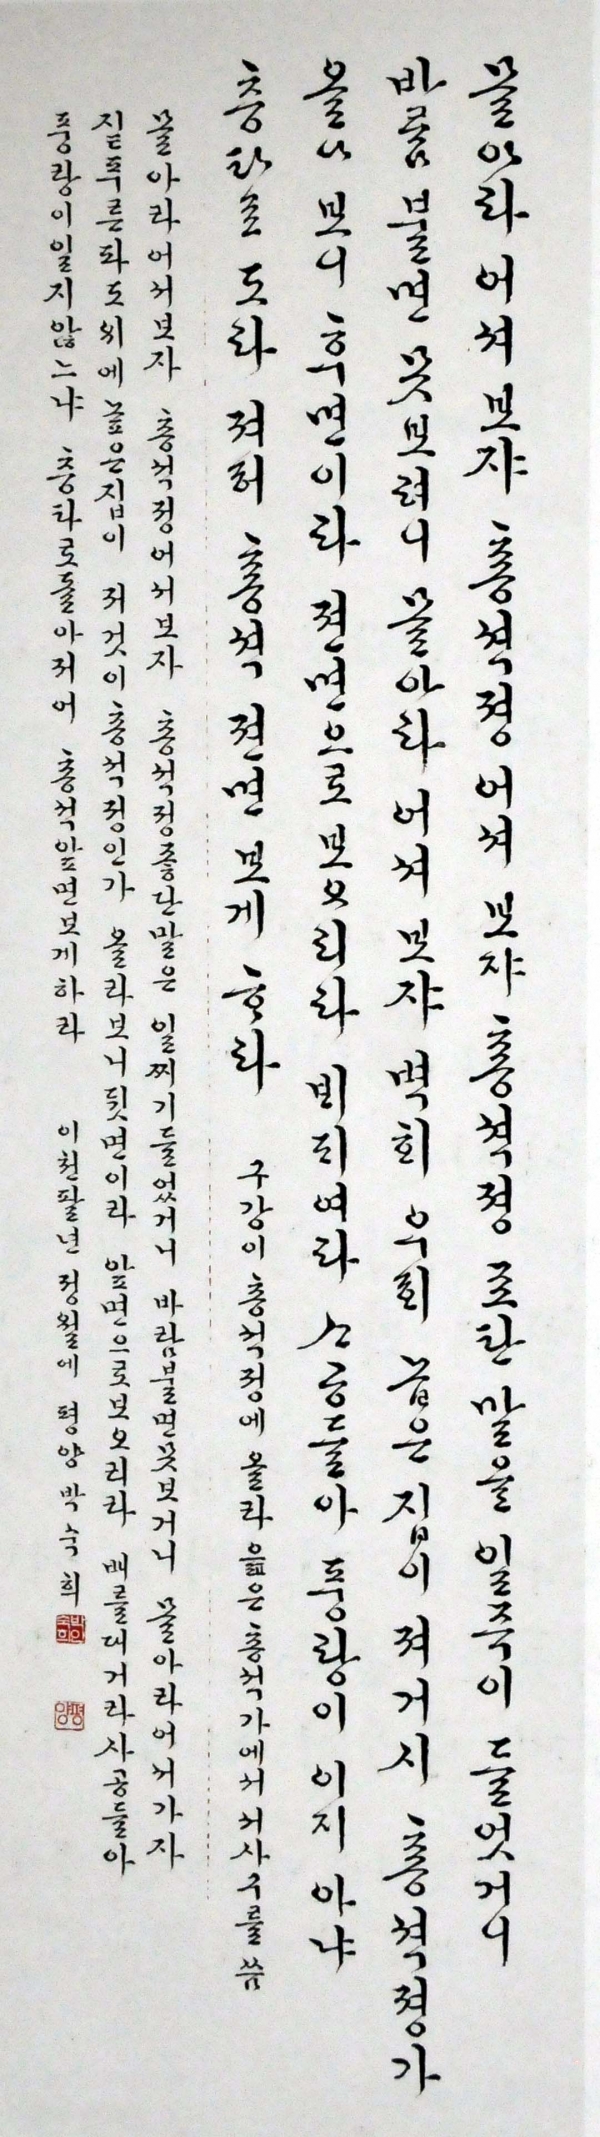 몰아라 어셔 보쟈 총셕졍 어셔 보쟈 총셕졍 조탄 말을 일즉이 들엇거니
바롬 불면 못보려니 몰아라 어셔 보쟈 벽회 우희 놉은 집이 져거시 총셕졍가
올나 보니 후면이라 젼면으로 보오리라 비 타여라 스공들아 풍랑이 이지 아냐
총타로 도라 져허 총셕 젼면 보게 호라 구강이 총석정에 올라 읊은 총석가에서 서사 구를 씀
몰아라어서보자 총석정어서보자 총석정좋단말은 일찌기들었거니 바람불면못보거니 몰아라어서가자
짙푸른파도위에 높은집이 저것이총석정인가 올라보니뒷면이라 앞면으로보오리라 배를대거라사공들아
풍랑이일지않느냐 총타로돌아저어 총석앞면보게하라 이천팔년 정월에 평양 박숙희